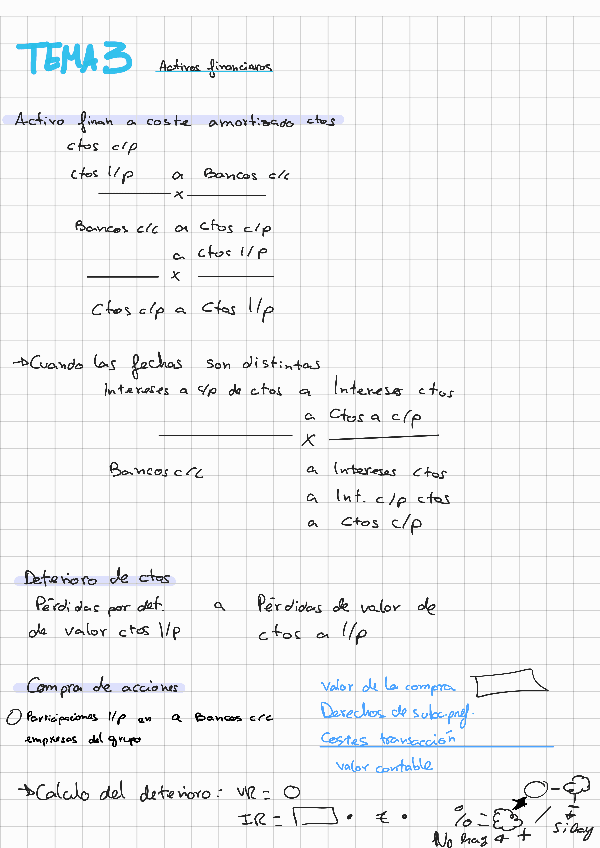 TEMA 3 Activos financieros
Activo finan a coste amortizado ctos
ctos c/p
ctos l/p a Bancos c/c
x
Bancos c/c a ctos c/p
a ctos l/p
x
Ctos c/p a Ctos l/p
→ Cuando las fechas son distintas
Intereses a c/p de ctos a Intereses ctos
a Ctos a c/p
x
Bancos c/c a Intereses ctos
a Int. c/p ctos
a Ctos c/p
Deterioro de ctos
Pérdidas por det. a Pérdidas de valor de
de valor ctos l/p ctos a l/p
Compra de acciones
Participaciones l/p en a Bancos c/c
empresas del grupo
valor de la compra
Derechos de subc.pref.
Costes transacción
valor contable
→ Calculo del deterioro: VR =
IR = • € •
% = - /
No hay +
Si hay +